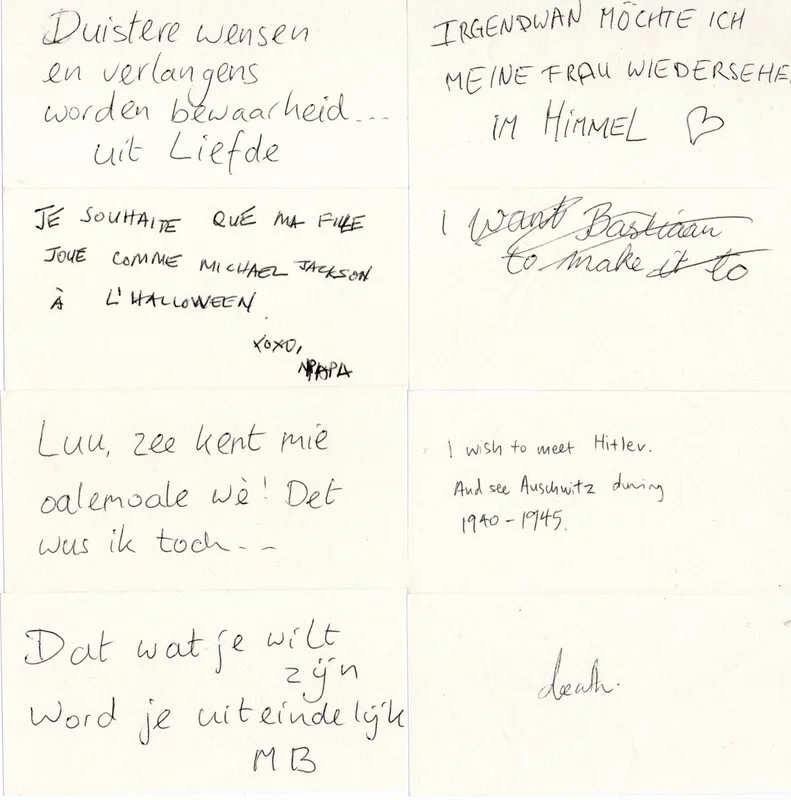 Duistere wensen
en verlangens
worden bewaarheid...
uit Liefde
IRGENDWAN MÖCHTE ICH
MEINE FRAU WIEDERSEHE
IM HIMMEL
JE SOUHAITE QUE MA FILLE
JOUE COMME MICHAEL JACKSON
À L'HALLOWEEN
XOXO,
PAPA
I want Bastiaan
to make it to
Luu, zee kent mie
oalemoale wè! Det
wus ik toch--
I wish to meet Hitler.
And see Auschwitz during
1940-1945.
Dat wat je wilt
zijn
Word je uiteindelijk
MB
death.